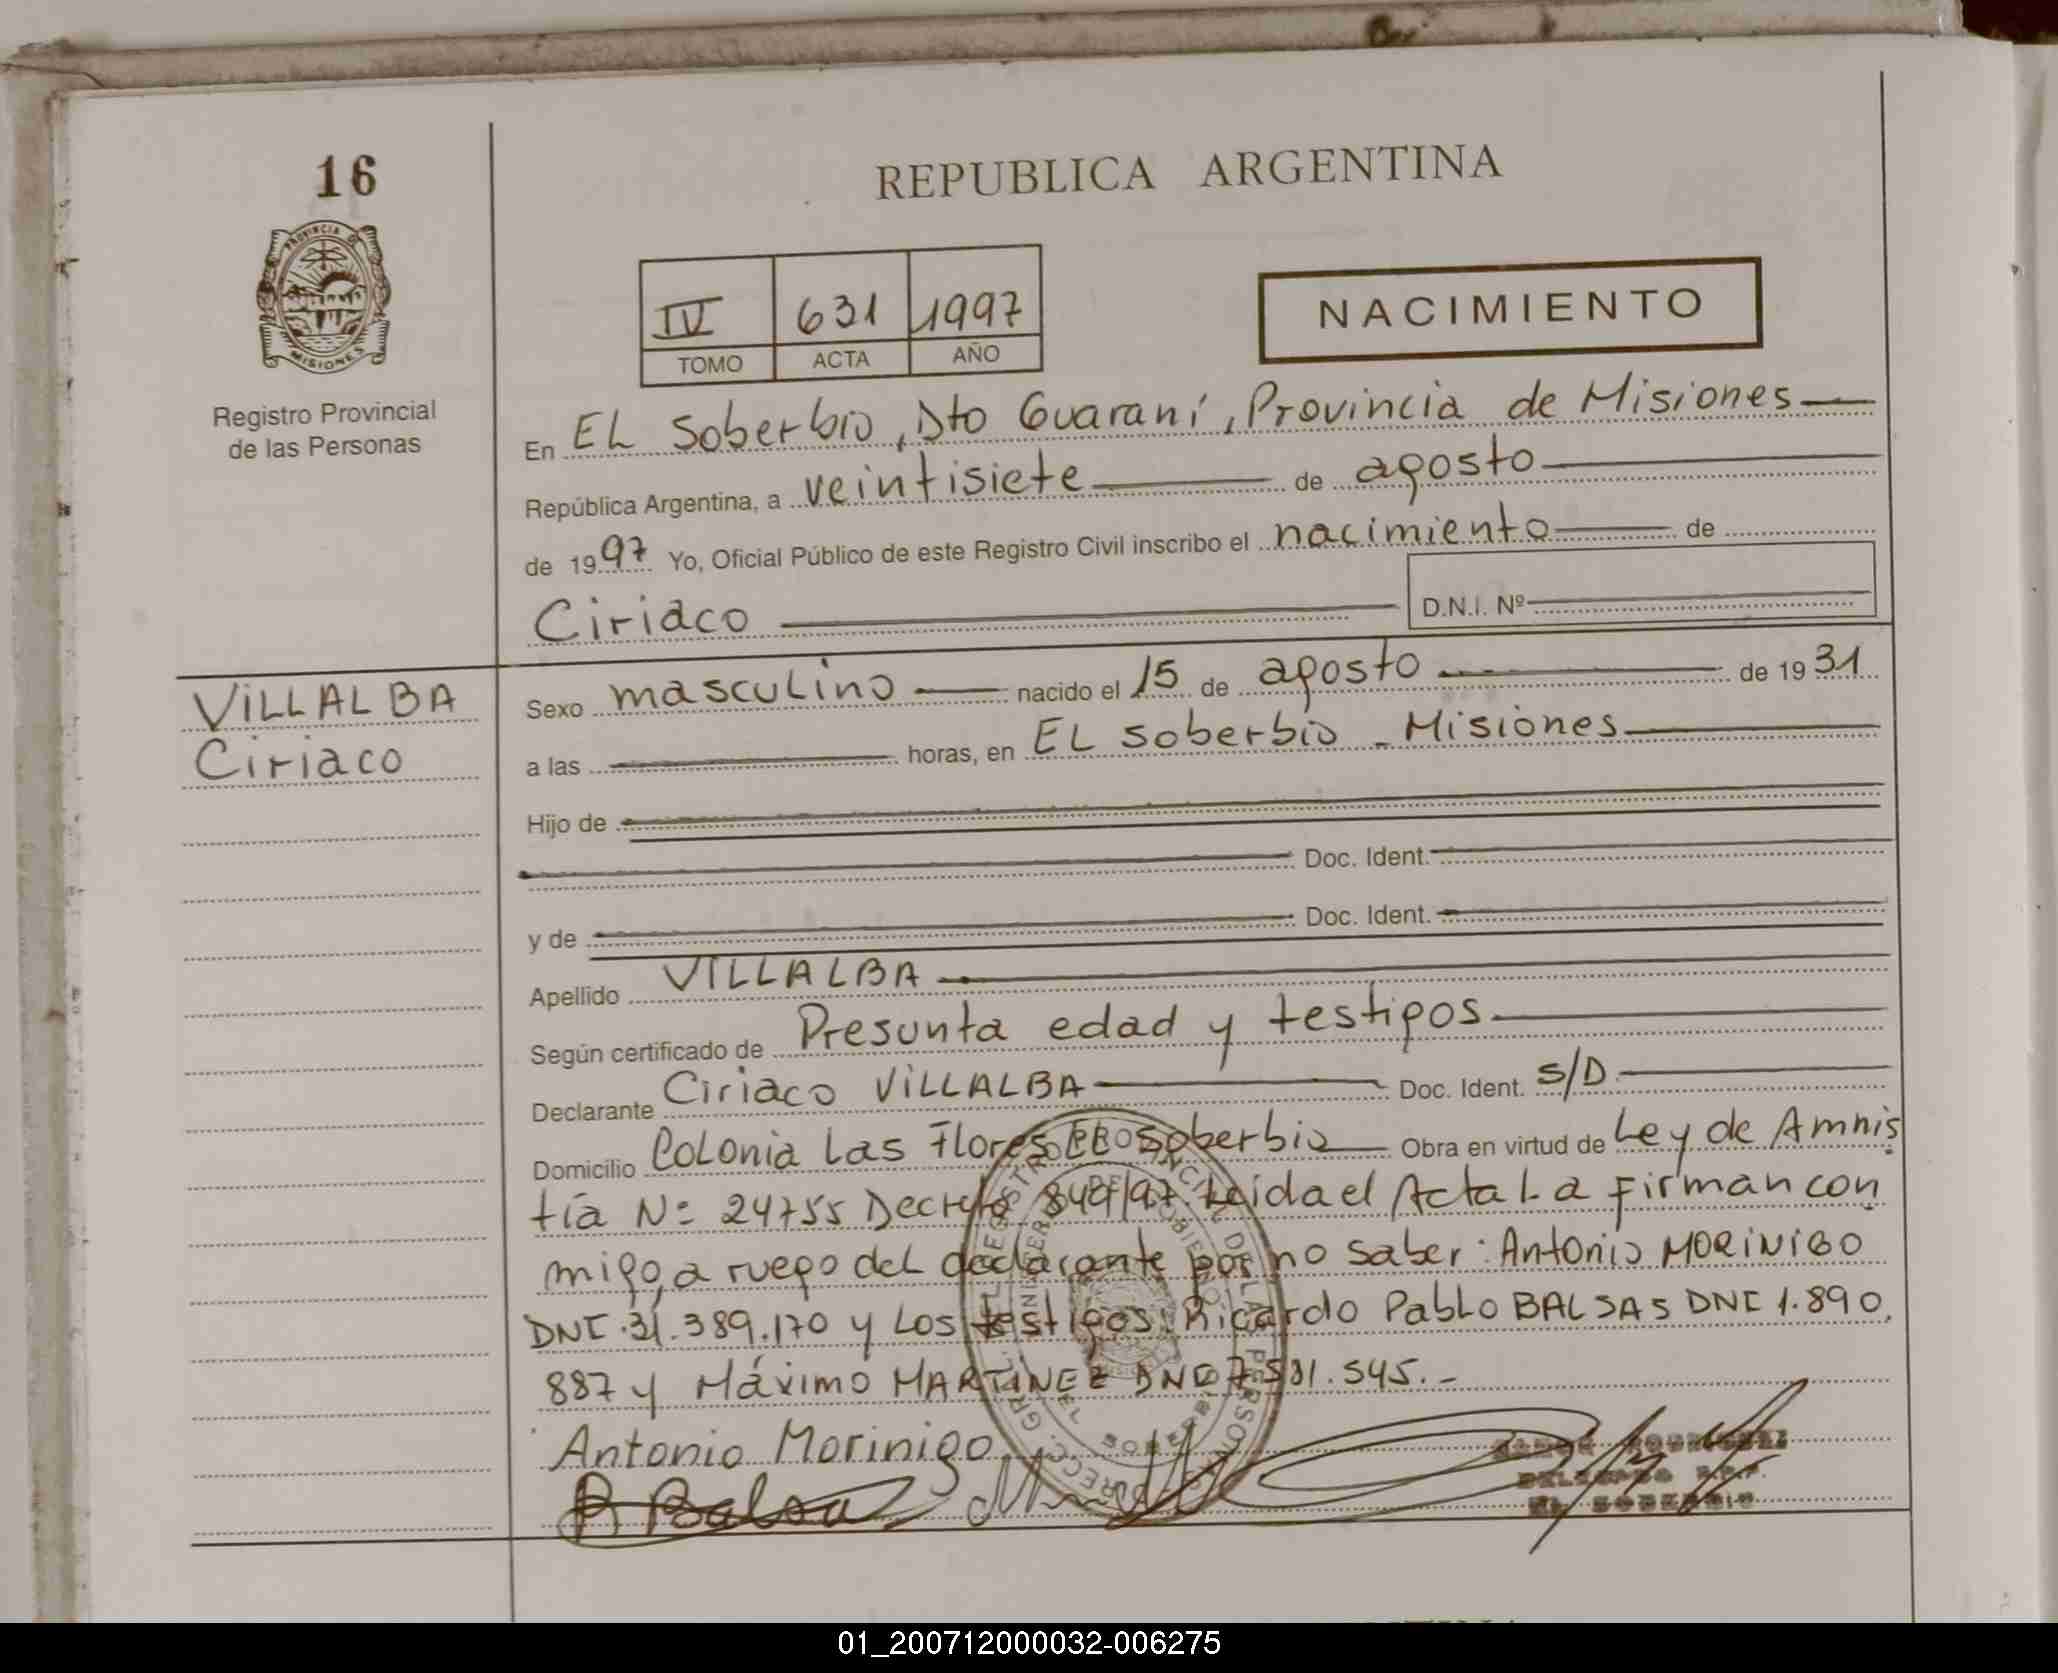 16
REPUBLICA ARGENTINA
PROVINCIA DE
MISIONES
Registro Provincial
de las Personas
IV 631 1997
TOMO ACTA AÑO
NACIMIENTO
En EL Soberbio, Dto Guaraní, Provincia de Misiones
República Argentina, a veintisiete de agosto
de 1997 Yo, Oficial Público de este Registro Civil inscribo el nacimiento de
Ciriaco D.N.I. Nº
VILLALBA
Ciriaco
Sexo masculino nacido el 15 de agosto de 1931
a las horas, en EL Soberbio - Misiones
Hijo de
Doc. Ident.
y de Doc. Ident.
Apellido VILLALBA
Según certificado de Presunta edad y testigos
Declarante Ciriaco VILLALBA Doc. Ident. S/D
Domicilio Colonia Las Flores EL Soberbio Obra en virtud de Ley de Amnis
tía Nº 24755 Decreto 849/97. Leida el Acta La Firman con
migo, a ruego del declarante por no saber: Antonio MORINIGO
DNI. 31.389.170 y Los testigos: Ricardo Pablo BALSAS DNI 1.890.
887 y Máximo MARTINEZ DNI 7.581.545.-
Antonio Morinigo
R Balsa
EL SOBERBIO
01_200712000032-006275